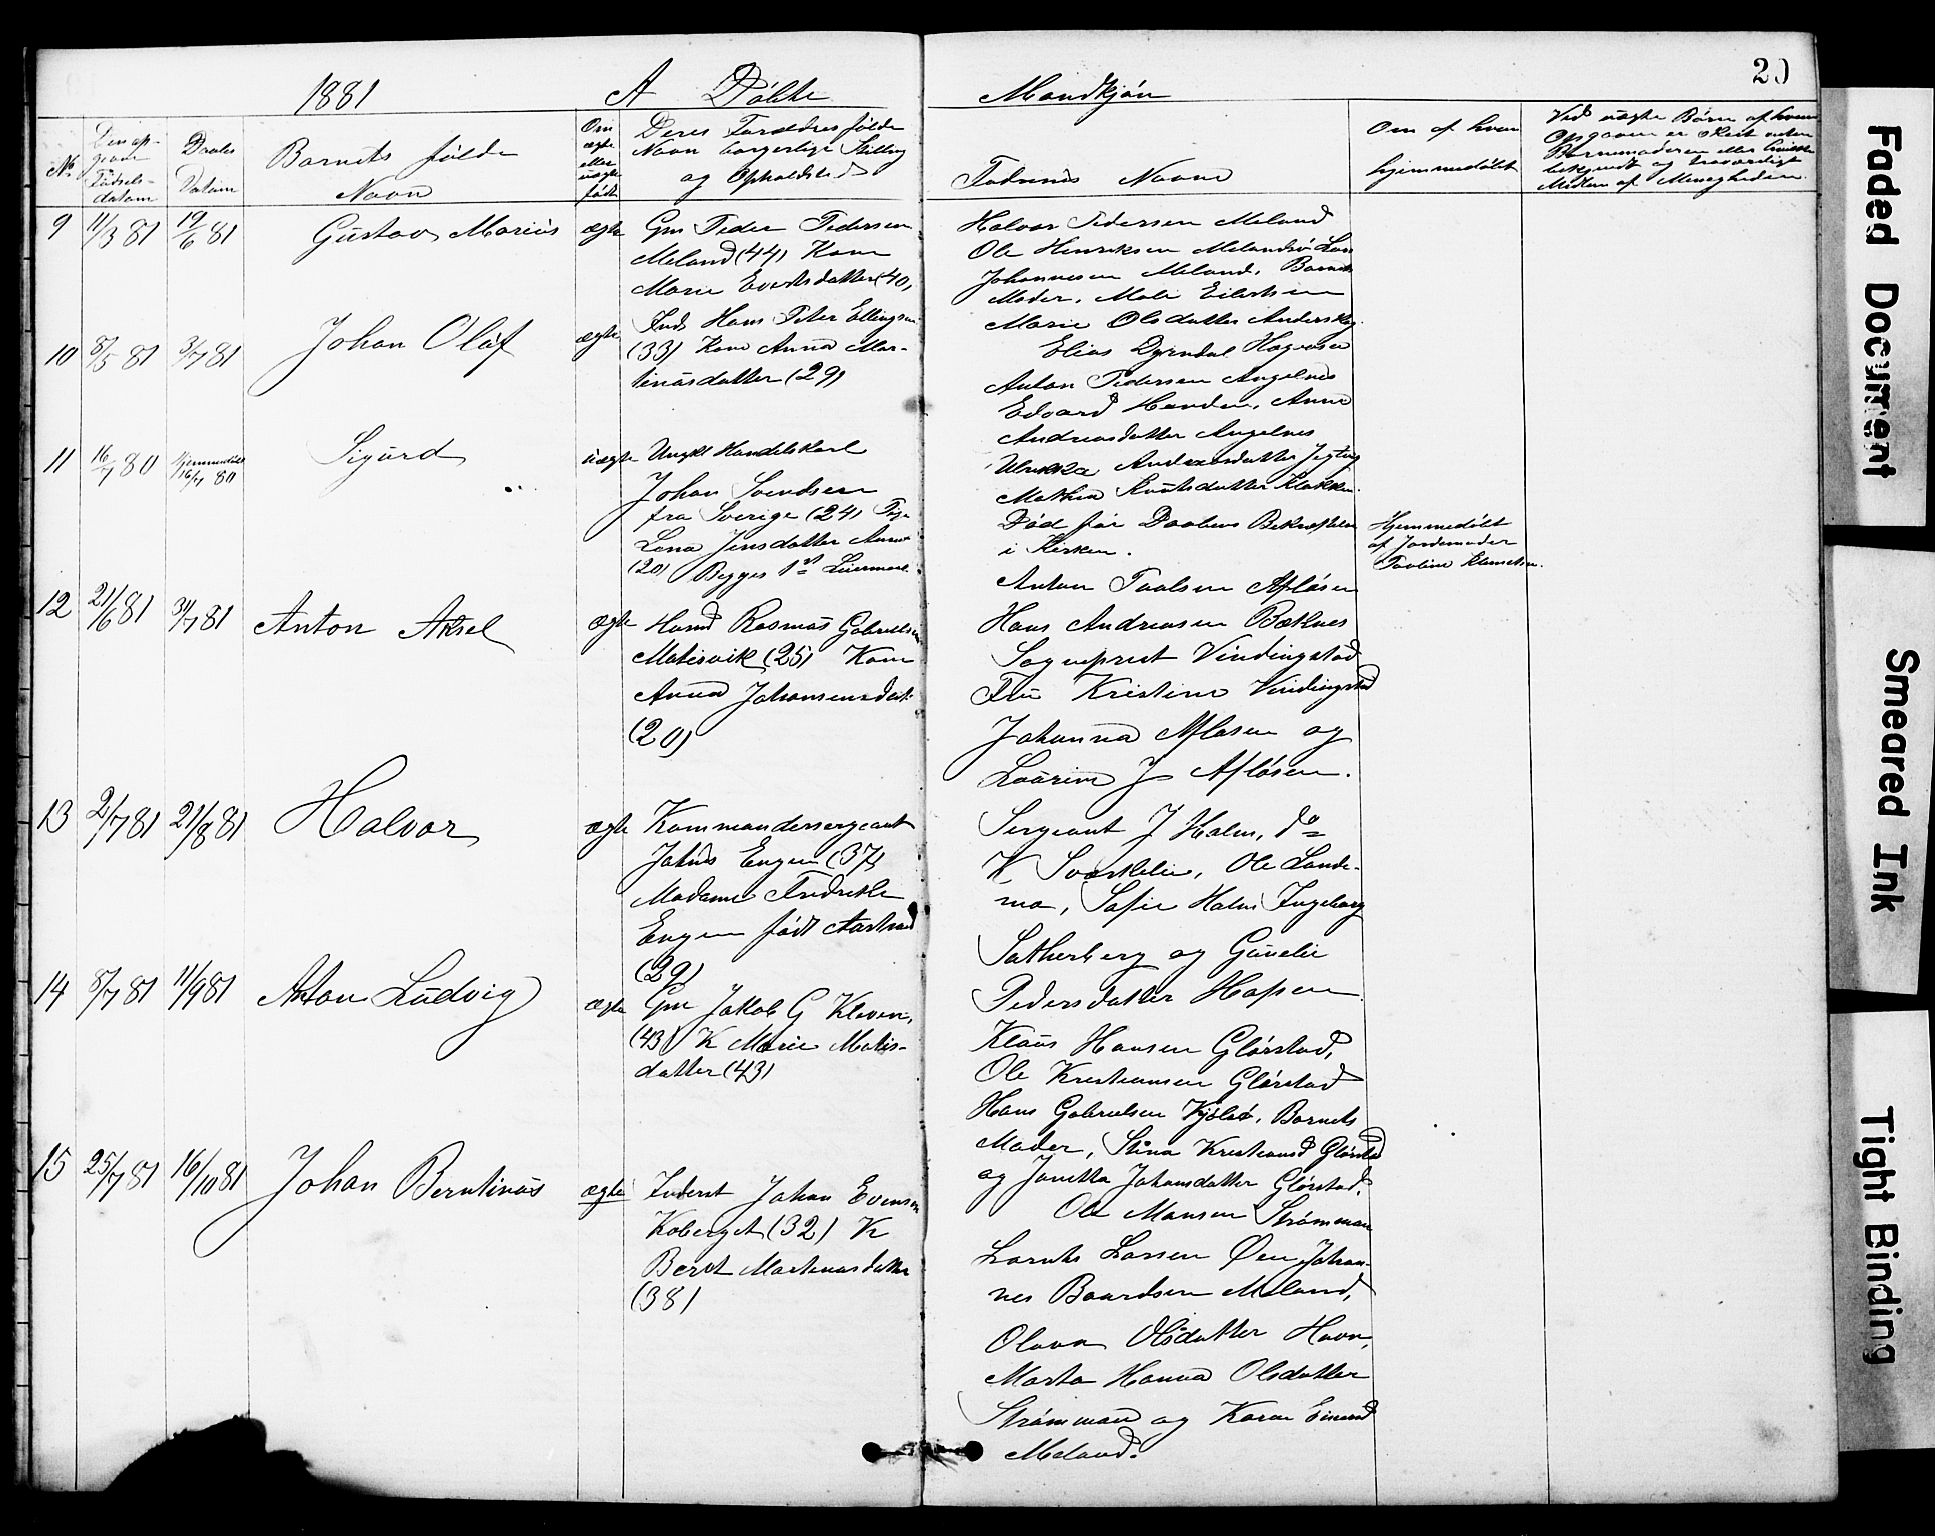 20
1881 A Døbte Mandkjøn
No.
Den op-
givne
Fødsels-
datum
Daabs
Datum
Barnets fulde
Navn
Om
ægte
eller
uægte
født
Deres Forældres fulde
Navn borgerlige Stilling
og Opholdsted
Faddernes Navne
Om af hvem
hjemmedøbt
Ved uægte Børn af hvem
Opgaven er skeet uden
Barnemoderen eller
bekjendt og troværdigt
Medlem af Menigheden.
9 11/3 81 19/6 81 Gustav Marius ægte
Gm Peder Pedersen
Meland (44) Kone
Marie Evertsdatter (40)
Halvor Pedersen Meland
Ole Henriksen Melandsø Lars
Johannesen Meland. Barnets
Moder. Mali Eilertsen
Marie Olsdatter
10 8/5 81 3/7 81 Johan Olaf ægte
Ind. Hans Peter Ellingsen
(33) Kone Anna Mar-
tinusdatter (29)
Elias Dyrndal
Anton Pedersen Angelnes
Edvard Anne
Andreasdatter Angelnes
11 16/7 80 Hjemmedøbt 16/7 80 Sigurd uægte
Ungkl Handelskarl
Johan Svendsen
fra Sverige (24) Pige
Lena Jensdatter
(20) Begges 1st Leiermaal.
Andreasdatter
Mathea Knutsdatter
Død før Daabens Bekræftelse
i Kirken.
Hjemmedøbt
af Jordemoder
12 21/6 81 31/7 81 Anton Aksel ægte
Husmd Rasmus Gabrielsen
(25) Kone
Anna Johansensdatt
(20)
Anton Paulsen Afløsen
Hans Andreasen Bæknes
Sogneprest Vindingstad
Fru Kristine Vindingstad
Johanna Afløsen og
Laurine J Afløsen.
13 2/7 81 21/8 81 Halvor ægte
Kommandersergeant
Engen (37)
Madame Fredrikke
Engen født
(29)
Sergeant J Holm, do
K Svorkelie, Ole Lande-
mo, Sofie Holm Ingeborg
Sætherberg og Gunelie
Pedersdatter Hopen
14 8/7 81 11/9 81 Anton Ludvig ægte
Gm Jakob G Kleven,
(43) K Marie Matis-
datter (43)
Klaus Hansen Glørstad,
Ole Kristiansen Glørstad
Hans Gabrielsen Kjølsø, Barnets
Moder, Stina Kristiansd Glørstad
og Janetta Johansdatter Glørstad.
15 25/7 81 16/10 81 Johan Berntinus ægte
Inderst Johan Evensen
Koberget (32) K
Berit Martinusdatter
(38)
Ole Monsen Strømman
Lornts Larsen Øen, Johan-
nes Baardsen Meland,
Olava Olsdatter Havn,
Marta Hanna Olsdatter
Strømman og Karen
Meland.
Faded Document
Smeared Ink
Tight Binding